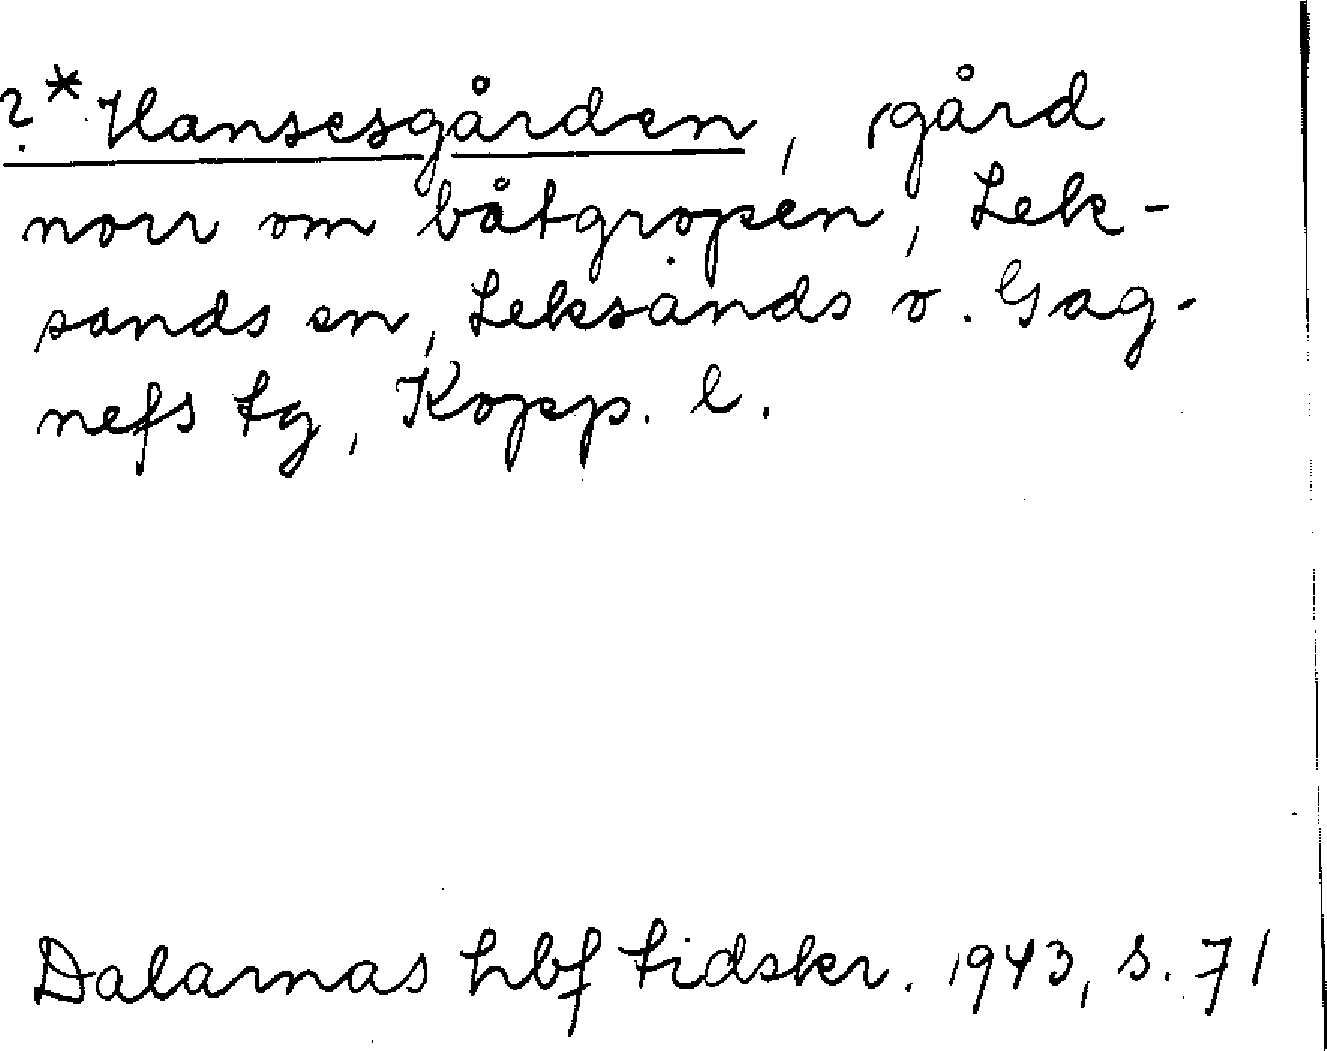 ?* Hansesgården, gård
norr om båtgropen, Lek-
sands sn, Leksands o. Gag-
nefs tg, Kopp. l.
Dalarnas hbf tidskr. 1943, s. 71